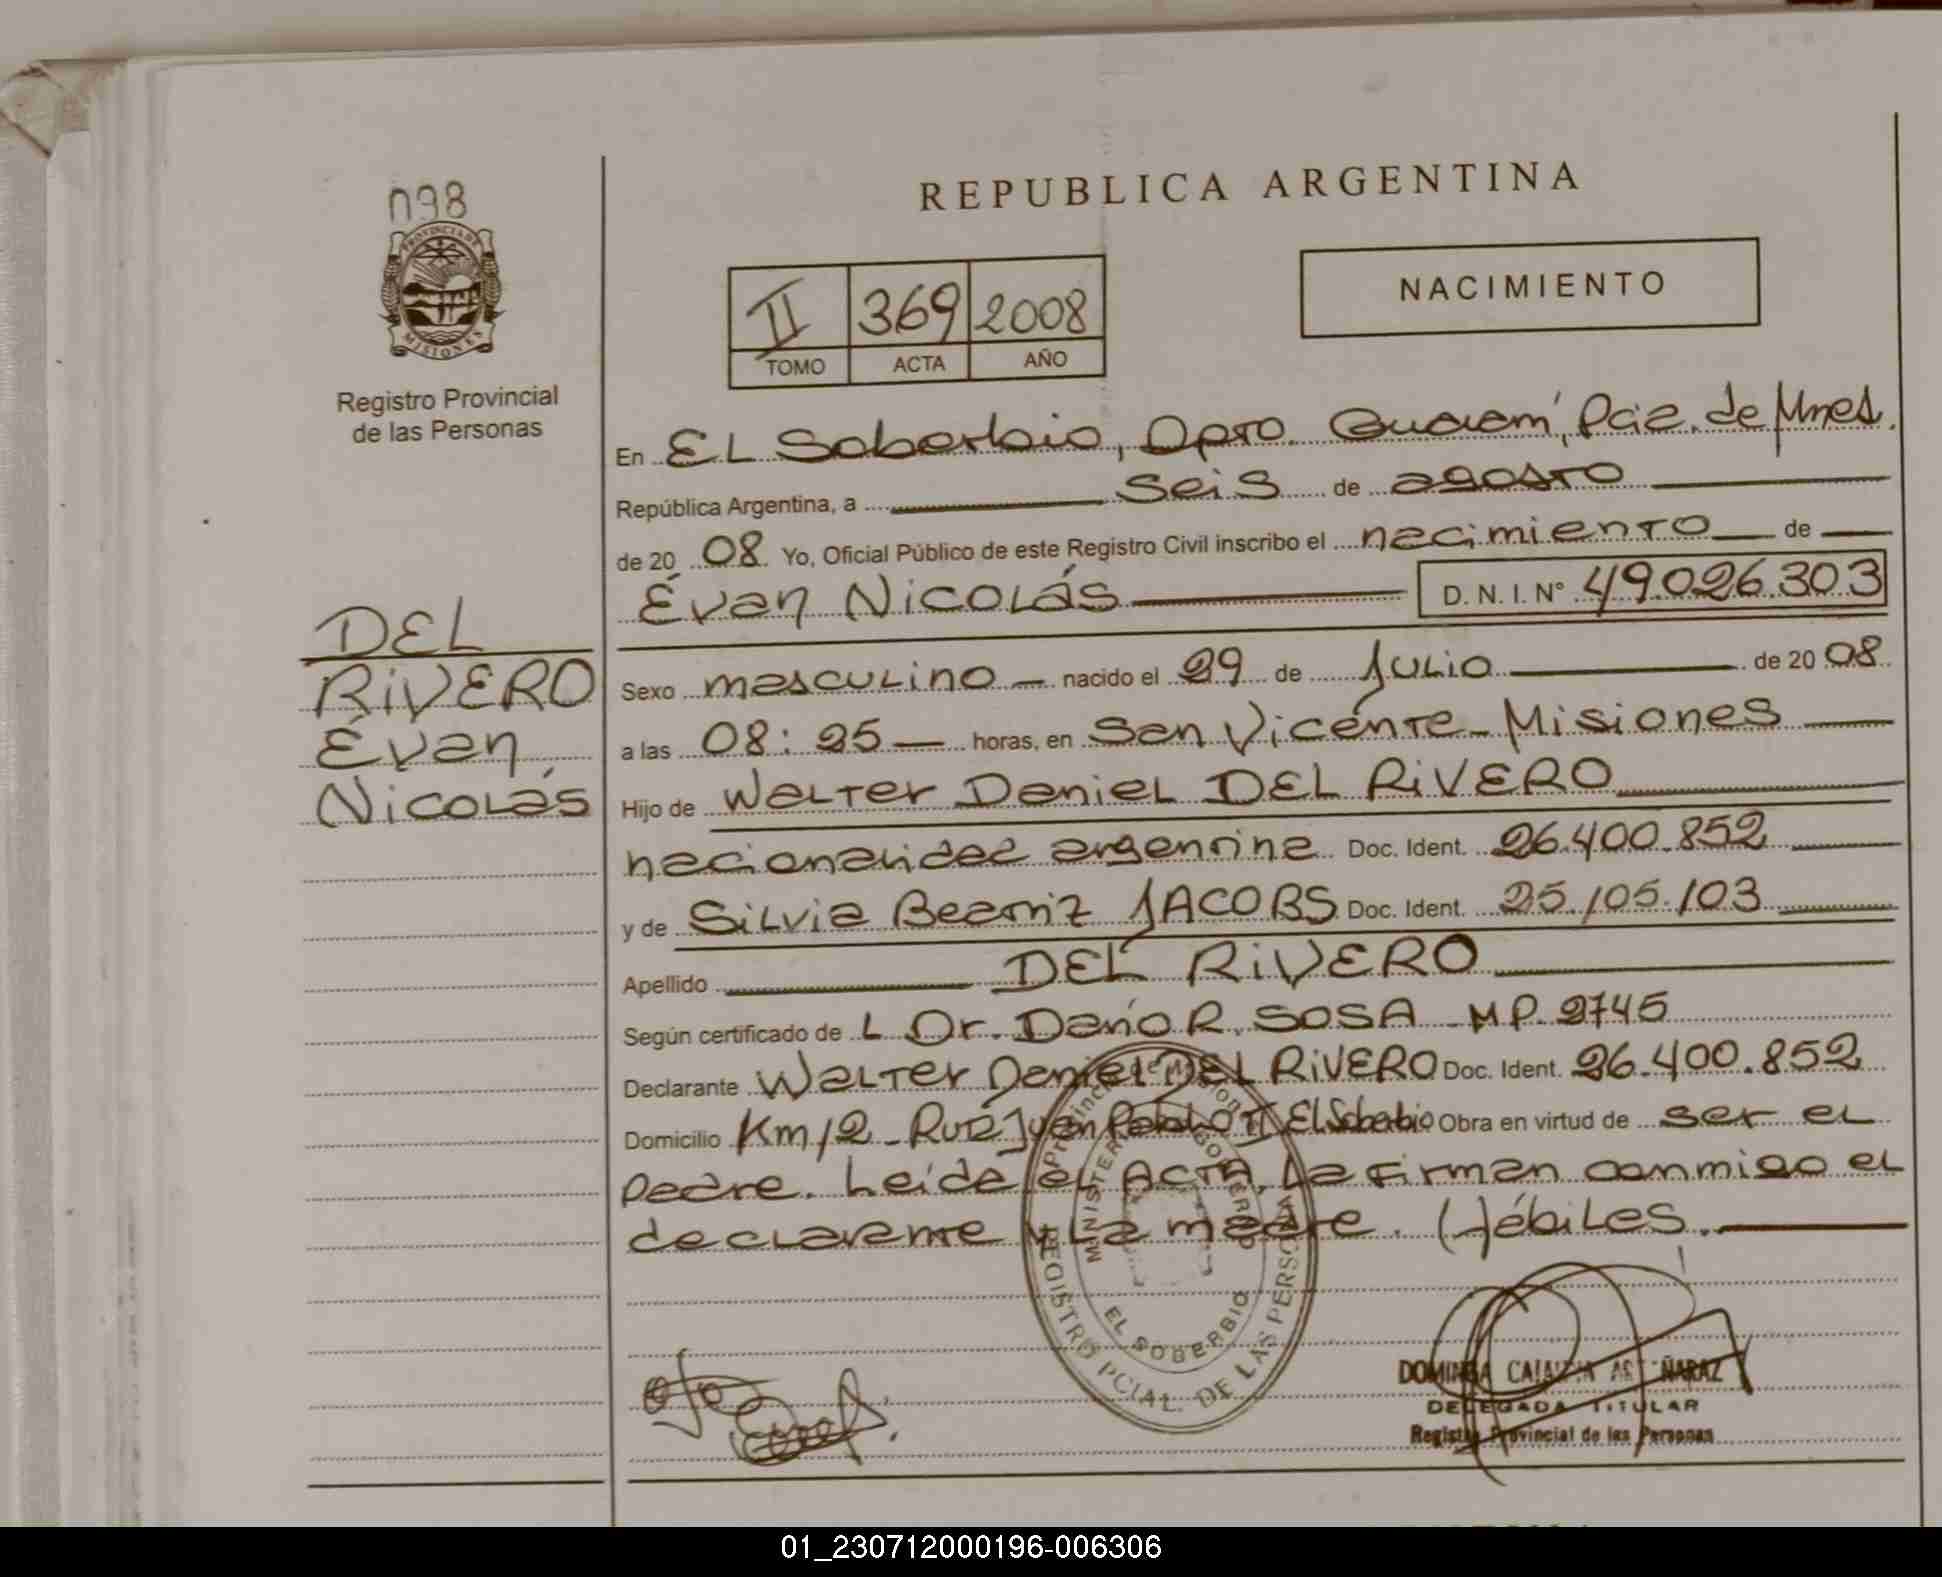 098
PROVINCIA DE
MISIONES
Registro Provincial
de las Personas
DEL
RiVERO
Évan
Nicolás
REPUBLICA ARGENTINA
II 369 2008
TOMO ACTA AÑO
NACIMIENTO
En EL Soberbio, Dpto. Guaraní, Pcia. de Mnes.
República Argentina, a seis de agosto
de 20 08 Yo, Oficial Público de este Registro Civil inscribo el nacimiento de
Évan Nicolás D. N. I. Nº 49.026.303
Sexo masculino nacido el 29 de Julio de 20 08
a las 08:25 horas, en San Vicente - Misiones
Hijo de Walter Daniel DEL RiVERO
nacionalidad argentina Doc. Ident. 26.400.852
y de Silvia Beatriz JACOBS Doc. Ident. 25.105.103
Apellido DEL RiVERO
Según certificado de L Dr. Darío R. SOSA MP. 2745
Declarante Walter Daniel DEL RiVERO Doc. Ident. 26.400.852
Domicilio Km 12 - Ruta Juan Pablo II El Soberbio Obra en virtud de ser el
padre. Leída el ACTA, La firman conmigo el
declarante y La madre. Hábiles.
MINISTERIO GOBIERNO
EL SOBERBIO
REGISTRO PCIAL. DE LAS PERSONAS
DOMINGA
DELEGADA TITULAR
Registro Provincial de las Personas
01_230712000196-006306